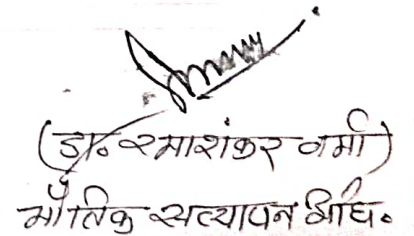 (डा॰ रमाशंकर वर्मा)
भौतिक सत्यापन अधि॰